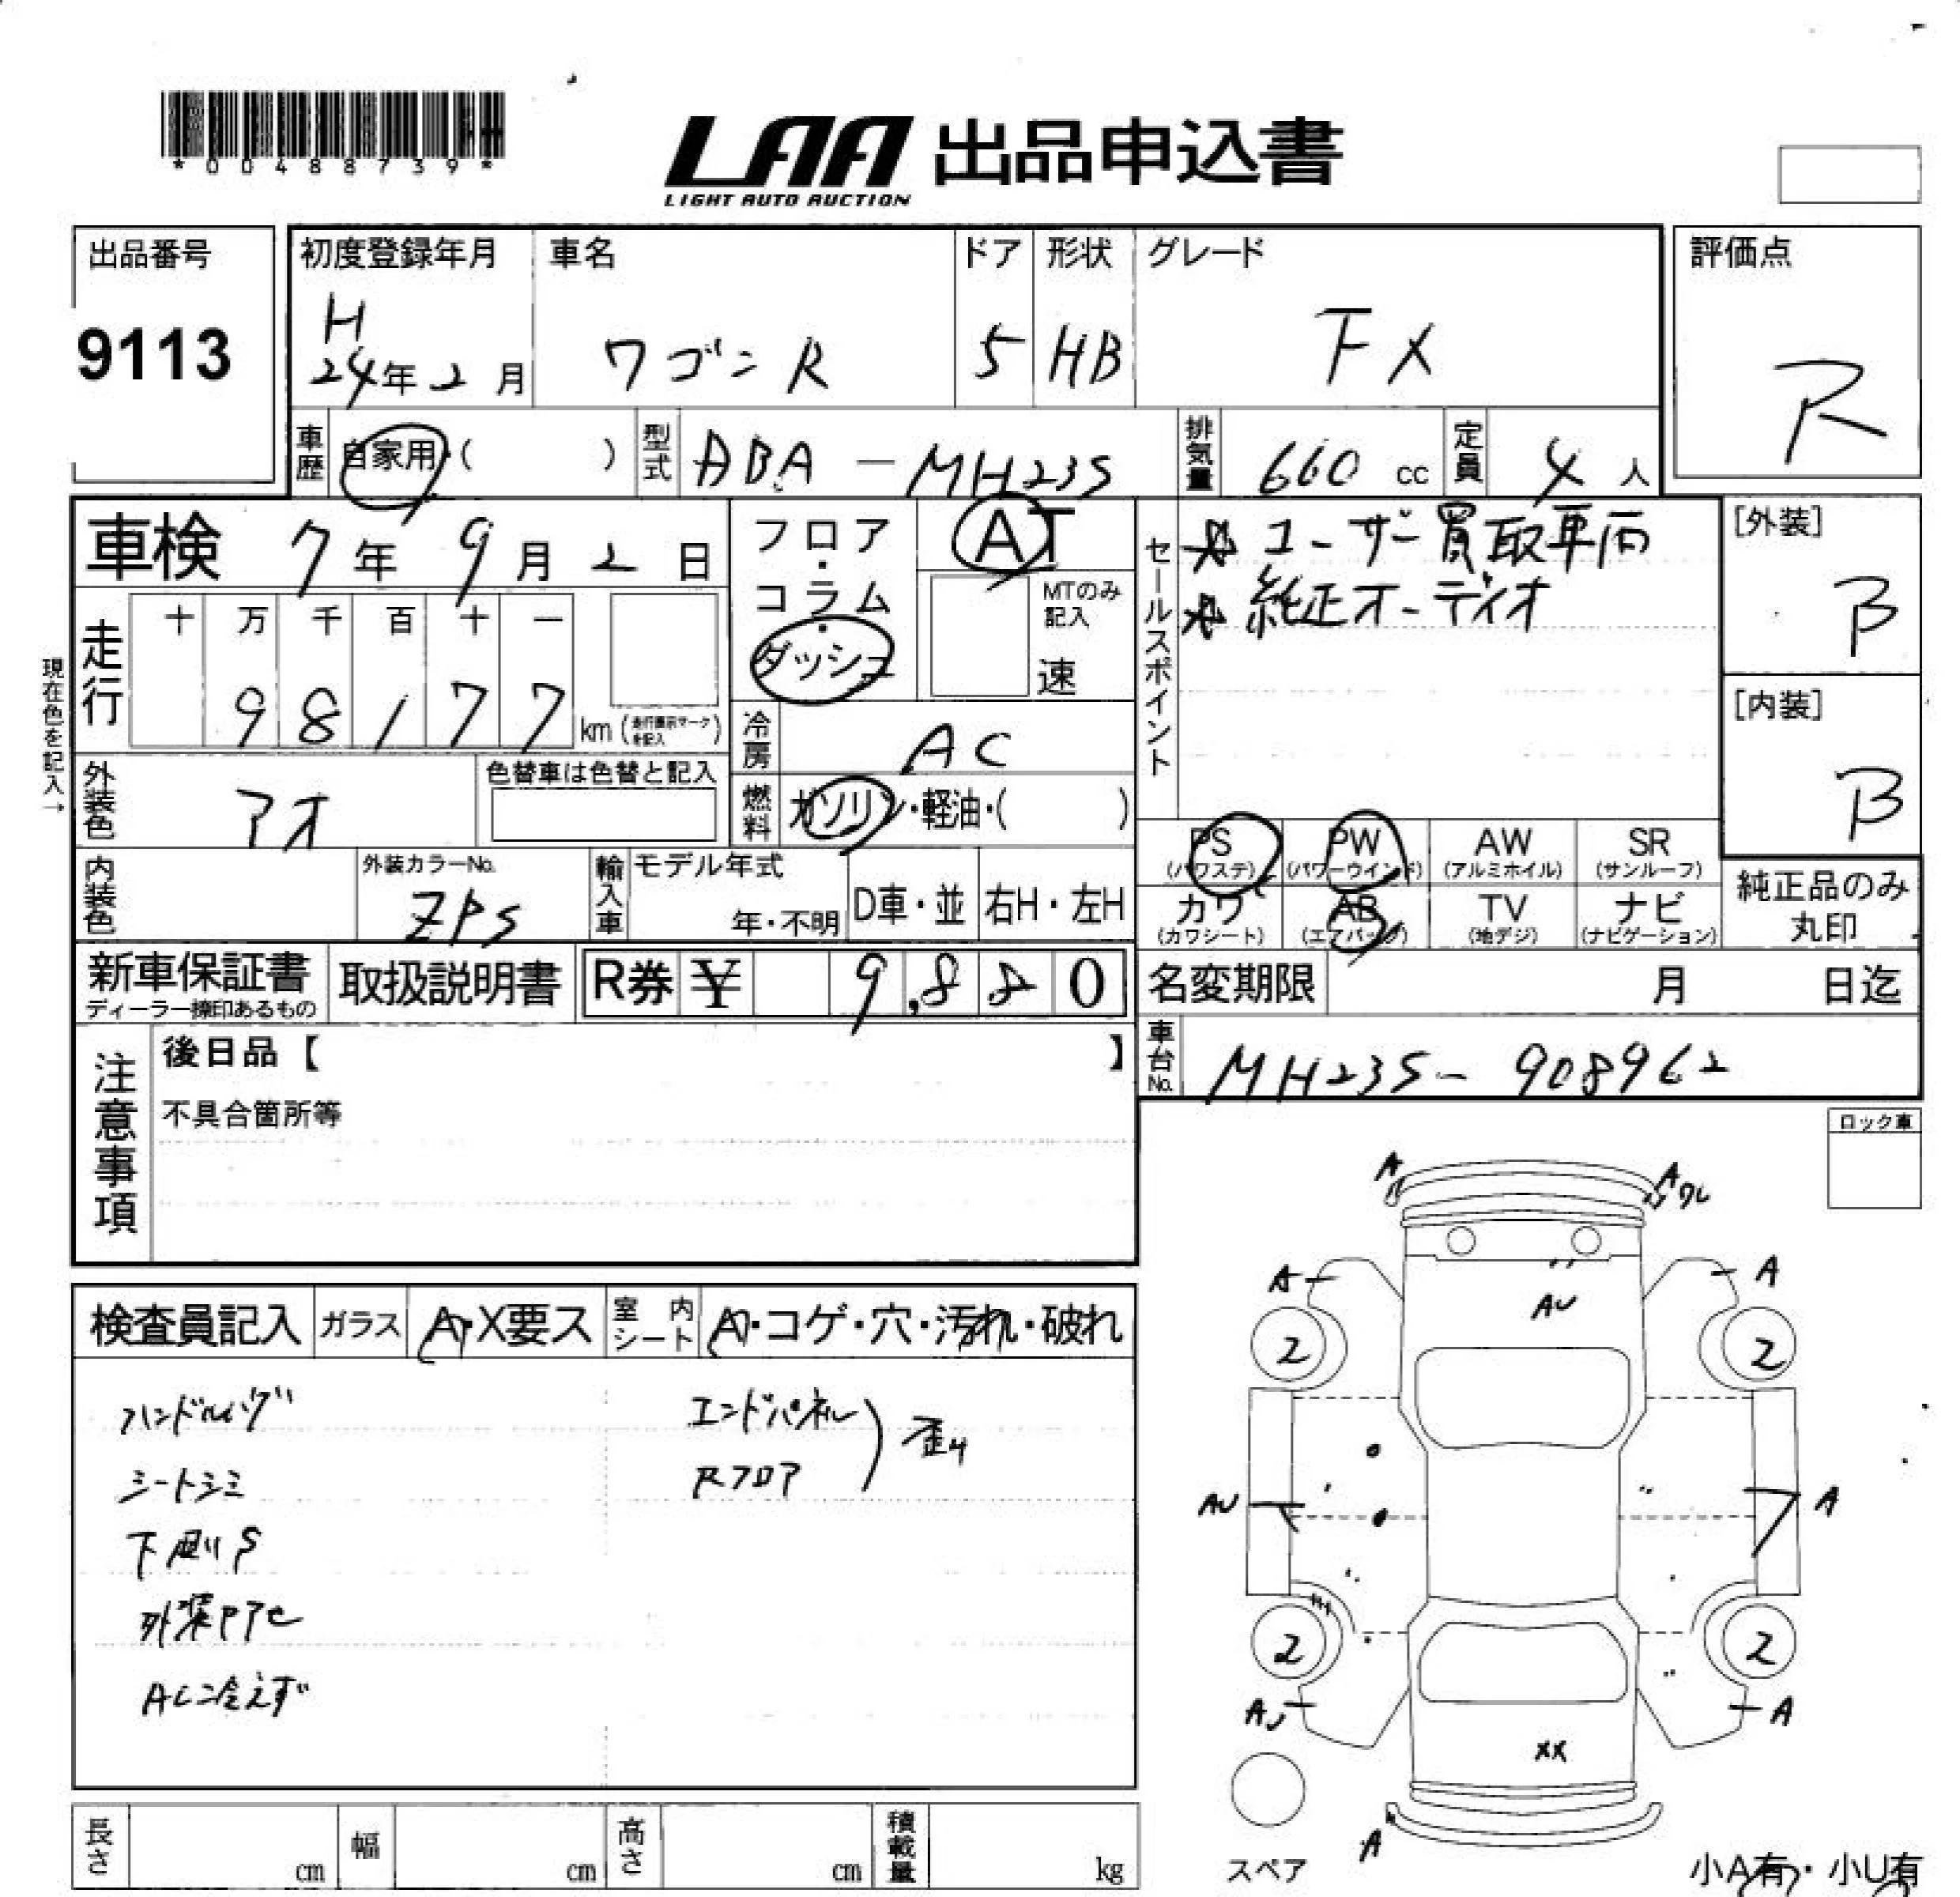 *00488739*
LAA 出品申込書
LIGHT AUTO AUCTION
出品番号
9113
初度登録年月
H
24年2月
車名
ワゴンR
ドア
5
形状
HB
グレード
FX
評価点
R
車歴 自家用・( )
型式 ABA-MH23S
排気量 660 cc
定員 4人
車検 7年9月2日
フロア・コラム・ダッシュ
AT
MTのみ記入
速
セールスポイント
☆ユーザー買取車両
☆純正オーディオ
[外装]
B
[内装]
B
現在色を記入→
走行
十 万 千 百 十 一
9 8 1 7 7
km (走行表示マークを記入)
冷房 AC
燃料 ガソリン・軽油・( )
外装色 アオ
色替車は色替と記入
内装色
外装カラーNo.
ZPS
輸入車
モデル年式
年・不明
D車・並
右H・左H
PS (パワステ)
PW (パワーウインド)
AW (アルミホイル)
SR (サンルーフ)
カワ (カワシート)
AB (エアバッグ)
TV (地デジ)
ナビ (ナビゲーション)
純正品のみ
丸印
新車保証書
ディーラー捺印あるもの
取扱説明書
R券 ¥ 9,880
名変期限 月 日迄
車台No. MH23S-908962
注意事項
後日品【 】
不具合箇所等
ロック車
検査員記入
ガラス
A・X要ス
室内シート
A・コゲ・穴・汚れ・破れ
ハンドルハゲ
シートシミ
下廻りS
外装アセ
AC冷えず
エンドパネル
Rフロア
歪み
A
A ワレ
A
A
AU
2
2
AU
A
2
2
A
XX
A
スペア
小A有・小U有
長さ cm
幅 cm
高さ cm
積載量 kg